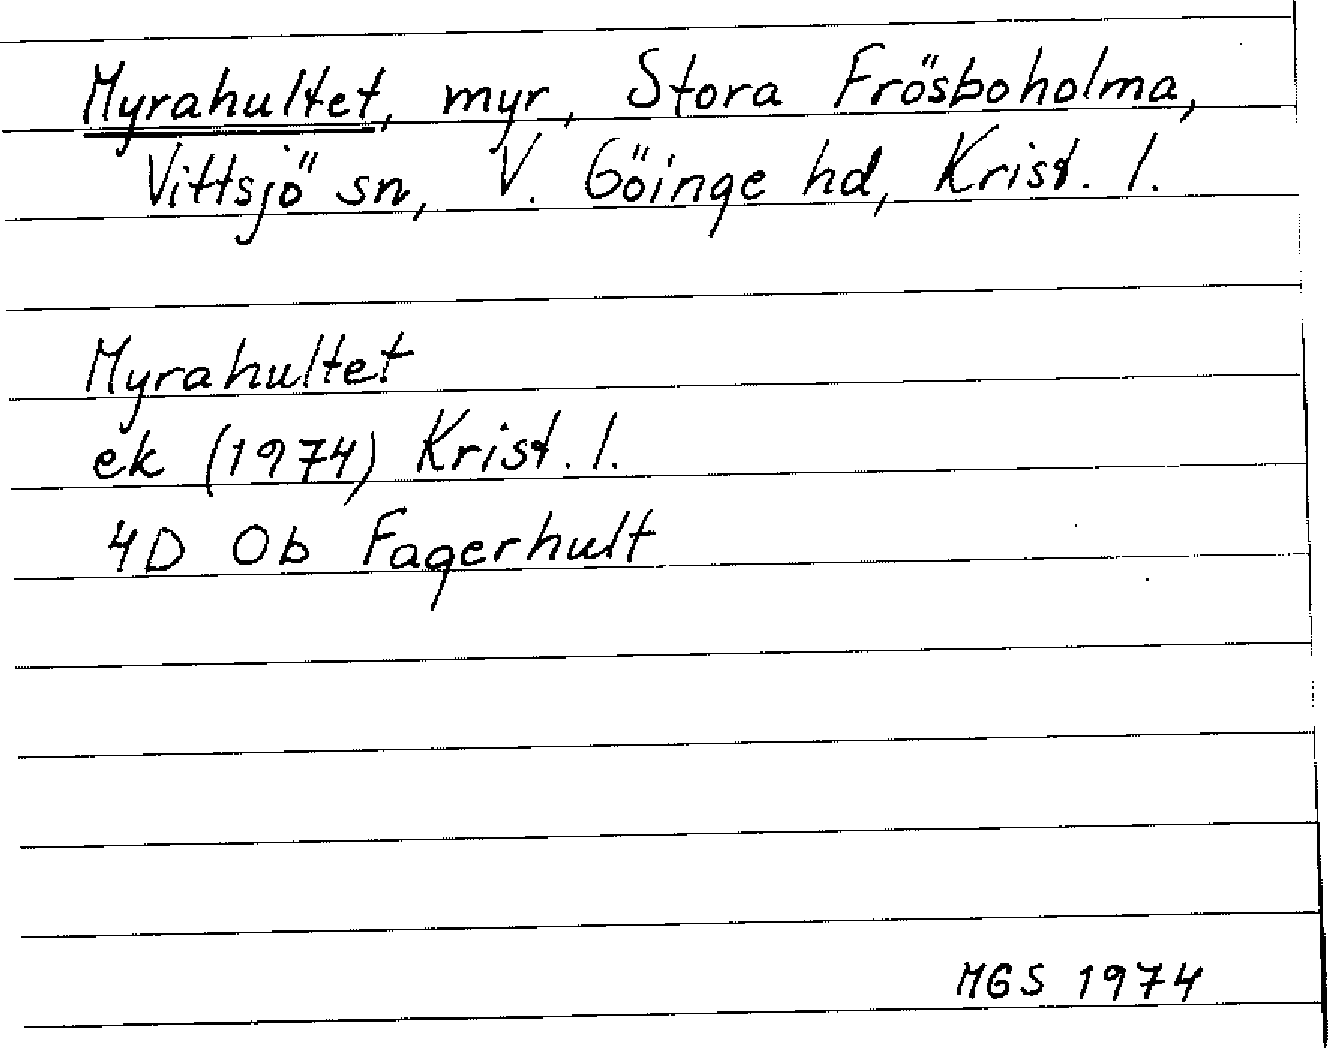 Myrahultet, myr, Stora Frösboholma,
Vittsjö sn, V. Göinge hd, Krist. l.
Myrahultet
ek (1974) Krist. l.
4D 0b Fagerhult
MGS 1974